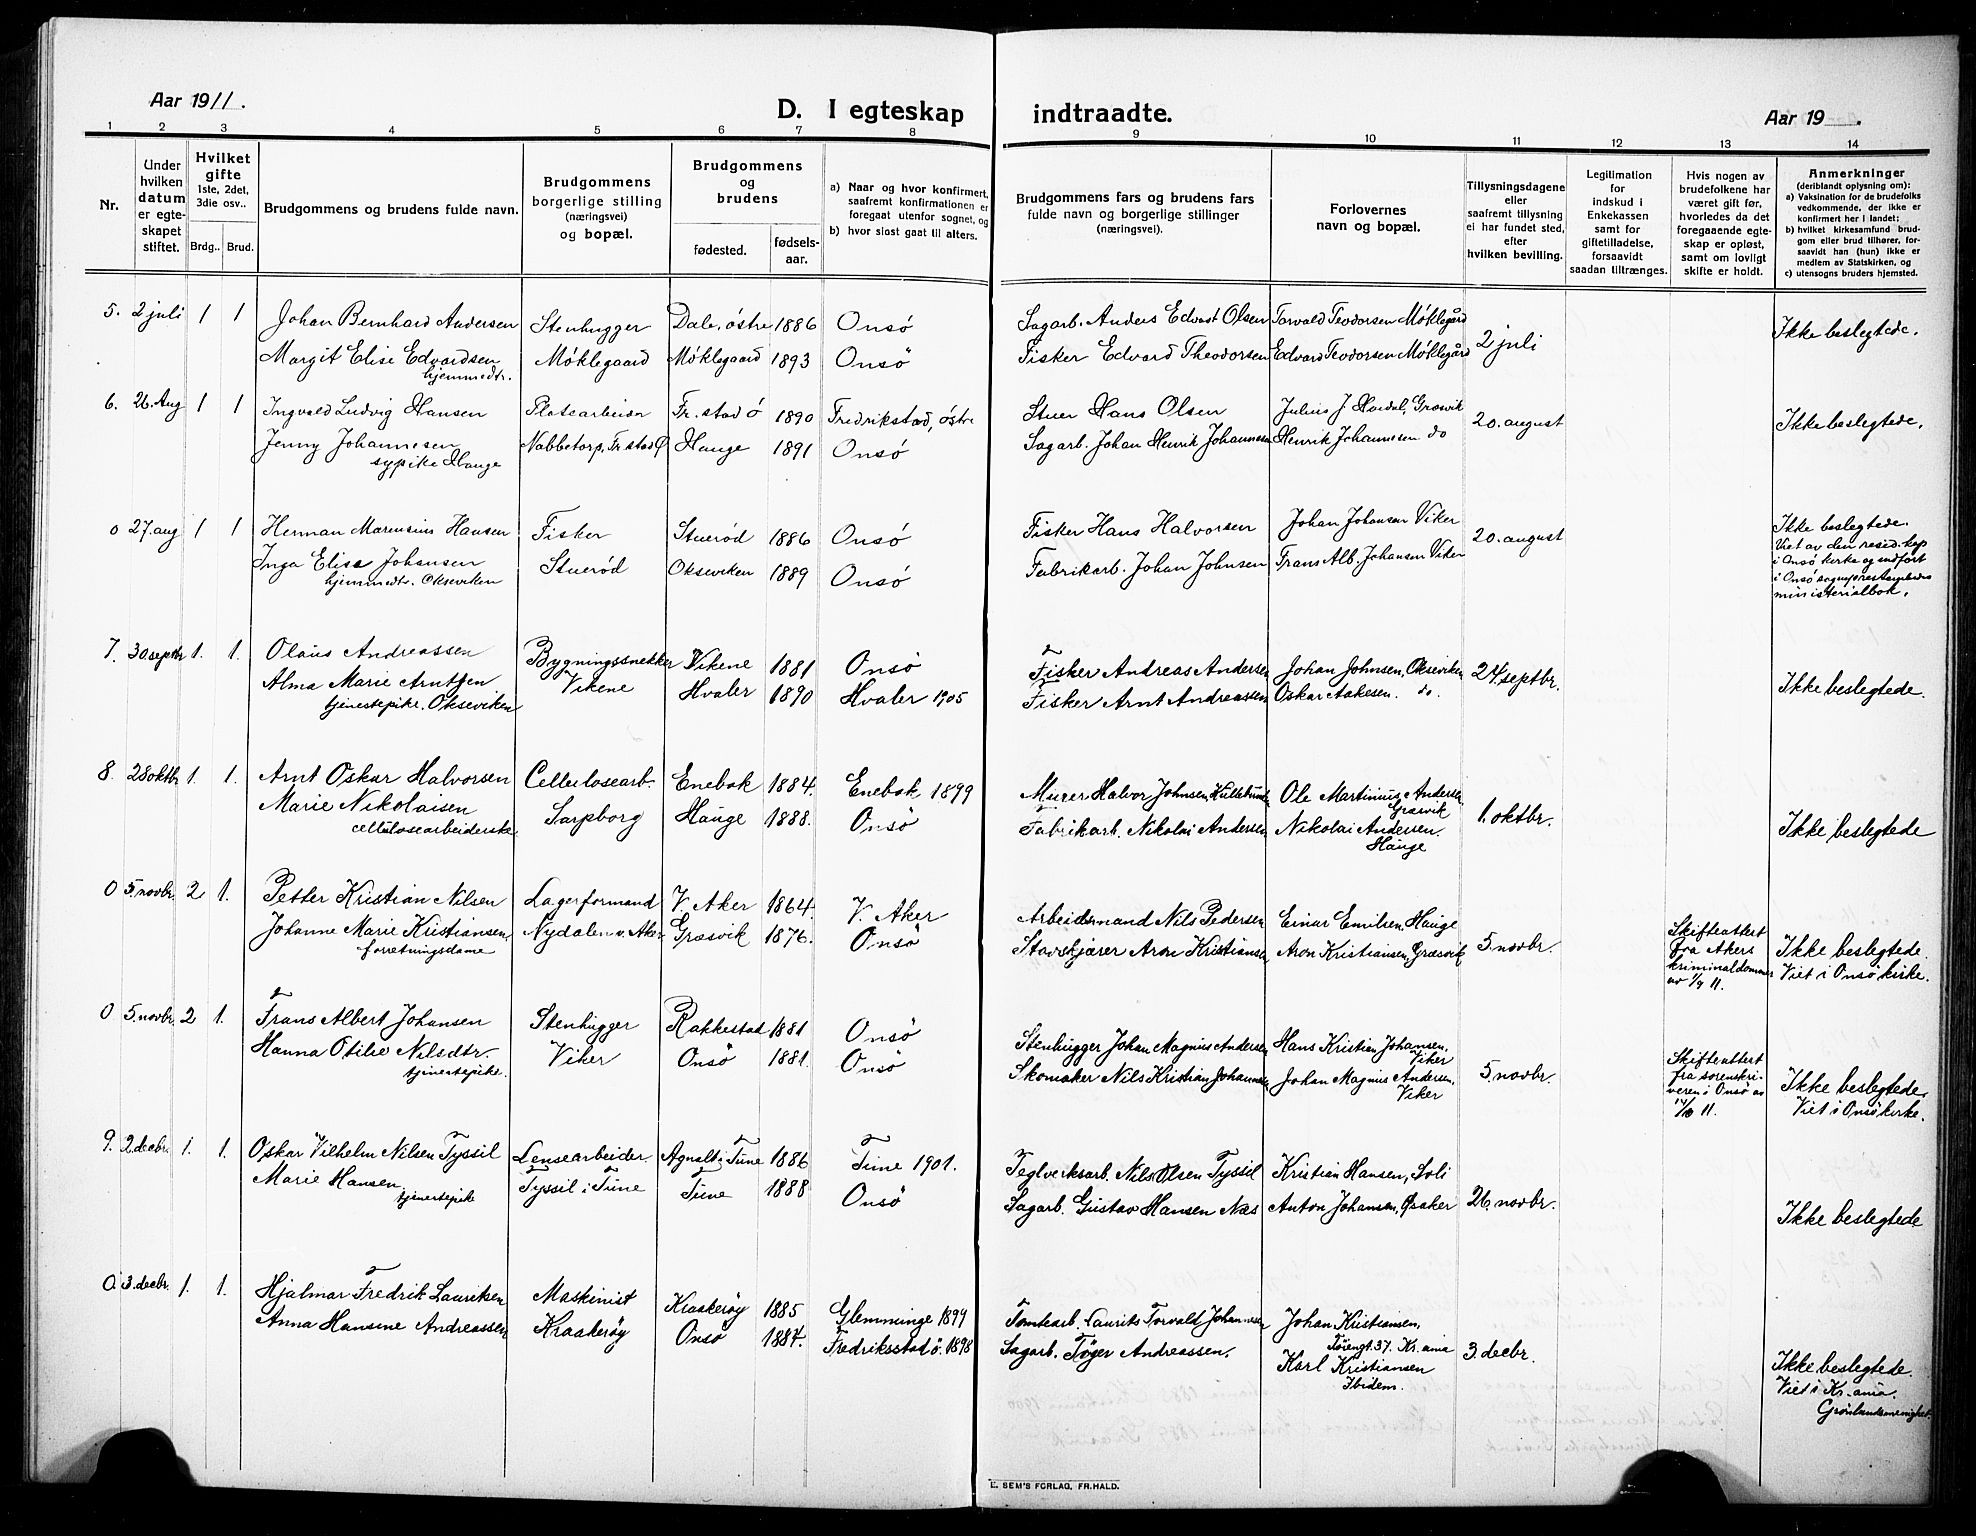 Aar 1911.
D. I egteskap indtraadte.
Aar 19 .
1 2 3 4 5 6 7 8 9 10 11 12 13 14
Nr.
Under hvilken datum er egte-skapet stiftet.
Hvilket gifte 1ste, 2det, 3die osv..
Brdg.. Brud.
Brudgommens og brudens fulde navn.
Brudgommens borgerlige stilling (næringsvei) og bopæl.
Brudgommens og brudens
fødested. fødsels-aar.
a) Naar og hvor konfirmert, saafremt konfirmationen er foregaat utenfor sognet, og
b) hvor sidst gaat til alters.
Brudgommens fars og brudens fars fulde navn og borgerlige stillinger (næringsvei).
Forlovernes navn og bopæl.
Tillysningsdagene eller saafremt tillysning ei har fundet sted, efter hvilken bevilling.
Legitimation for indskud i Enkekassen samt for giftetilladelse, forsaavidt saadan tiltrænges.
Hvis nogen av brudefolkene har været gift før, hvorledes da det foregaaende egte-skap er opløst, samt om lovligt skifte er holdt.
Anmerkninger (deriblandt oplysning om):
a) Vaksination for de brudefolks vedkommende, der ikke er konfirmert her i landet;
b) hvilket kirkesamfund brud-gom eller brud tilhører, for-saavidt han (hun) ikke er medlem av Statskirken, og
c) utensogns bruders hjemsted.
5. 2 juli 1 1 Johan Bernhard Andersen Stenhugger Dale, østre 1886 Onsö Sagarb. Anders Edvart Olsen Torvald Teodorsen Møklegård 2 juli Ikke beslegtede.
Margit Elise Edvardsen Møklegaard Møklegaard 1893 Onsö Fisker Edvard Theodorsen Edvard Teodorsen Møklegård
hjemmedtr.
6. 26. Aug 1 1 Ingvald Ludvig Hansen Platearbeider Fr.stad ö 1890 Fredrikstad, östre Stuer Hans Olsen Julius J. Hordal, Græsvik 20. august Ikke beslegtede.
Jenny Johannesen Nabbetorp, Fr.stad Ø Hauge 1891 Onsö Sagarb. Johan Henrik Johannesen Henrik Johannesen do
sypike Hauge
0 27. aug 1 1 Herman Marensius Hansen Fisker Stuerød 1886 Onsö Fisker Hans Halvorsen Johan Johansen Viker 20. august Ikke beslegtede.
Inga Elise Johansen Stuerød Okseviken 1889 Onsö Fabrikarb. Johan Johnsen Frans Alb. Johansen Viker Viet av den resid. kap
hjemmedt. Okseviken i Onsö kirke og indført
i Onsö sogneprestembedes
ministerialbok.
7. 30. septbr 1. 1. Olaus Andreassen Bygningssnekker Vikene 1881 Onsö Fisker Andreas Andersen Johan Johnsen, Okseviken 24. septbr. Ikke beslegtede.
Alma Marie Arntsen Vikene Hvaler 1890 Hvaler 1905 Fisker Arnt Andreassen Oskar Aakesen. do.
tjenestepike. Okseviken
8. 28 oktbr 1. 1. Arnt Oskar Halvorsen Cellulosearb. Enebak 1884. Enebak 1899 Murer Halvor Johnsen, Ole Martinius Andersen 1. oktbr. Ikke beslegtede
Græsvik
Marie Nikolaisen Sarpborg Hauge 1888. Onsö Fabrikarb. Nikolai Andersen Nikolai Andersen.
cellulosearbeiderske. Hauge
0 5. novbr. 2 1. Petter Kristian Nilsen Lagerformand V. Aker 1864. V. Aker Arbeidsmand Nils Pedersen Einar Emilsen, Hauge 5. novbr. Skifteattest Ikke beslegtede.
Johanne Marie Kristiansen, Nydalen v. Aker Græsvik 1876. Onsö Stavskjærer Aron Kristiansen Aron Kristiansen, Græsvik fra Akers Viet i Onsö kirke.
forretningsdame kriminaldommer
av 1/9 11.
0 5. novbr. 2 1. Frans Albert Johansen Stenhugger Rakkestad 1881 Onsö Stenhugger Johan Magnus Andersen Hans Kristian Johansen, Viker 5. novbr. Skifteattest Ikke beslegtede.
Hanna Otilie Nilsdtr. Viker Onsö 1881 Onsö Skomaker Nils Kristian Johannsen Johan Magnus Andersen, Viker fra sorenskri- Viet i Onsö kirke.
tjenestepike. veren i Onsö av
11.
9. 2. decbr. 1. 1. Oskar Vilhelm Nilsen Tyssil Lensearbeider Agnalt i Tune 1886 Tune 1901. Teglverksarb. Nils Olsen Tyssil Kristian Hansen, Soli 26. novbr. Ikke beslegtede
Marie Hansen, Tyssil i Tune Tune 1888 Onsö Sagarb. Gustav Hansen Næs Anton Johansen,
tjenestepike
0. 3. decbr. 1. 1. Hjalmar Fredrik Lauritsen Maskinist Kraakerøy 1885 Glemminge 1899 Tomtearb. Laurits Torvald Johannesen Johan Kristiansen, 3. decbr. Ikke beslegtede.
Anna Hansine Andreassen Kraakerøy Onsö 1884. Fredriksstad ö. 1898 Sagarb. Töger Andreassen. 37. Kr.ania Viet i Kr.ania.
Karl Kristiansen Grønlandsmenighet.
Ibidem.
E. SEM'S FORLAG, FR.HALD.